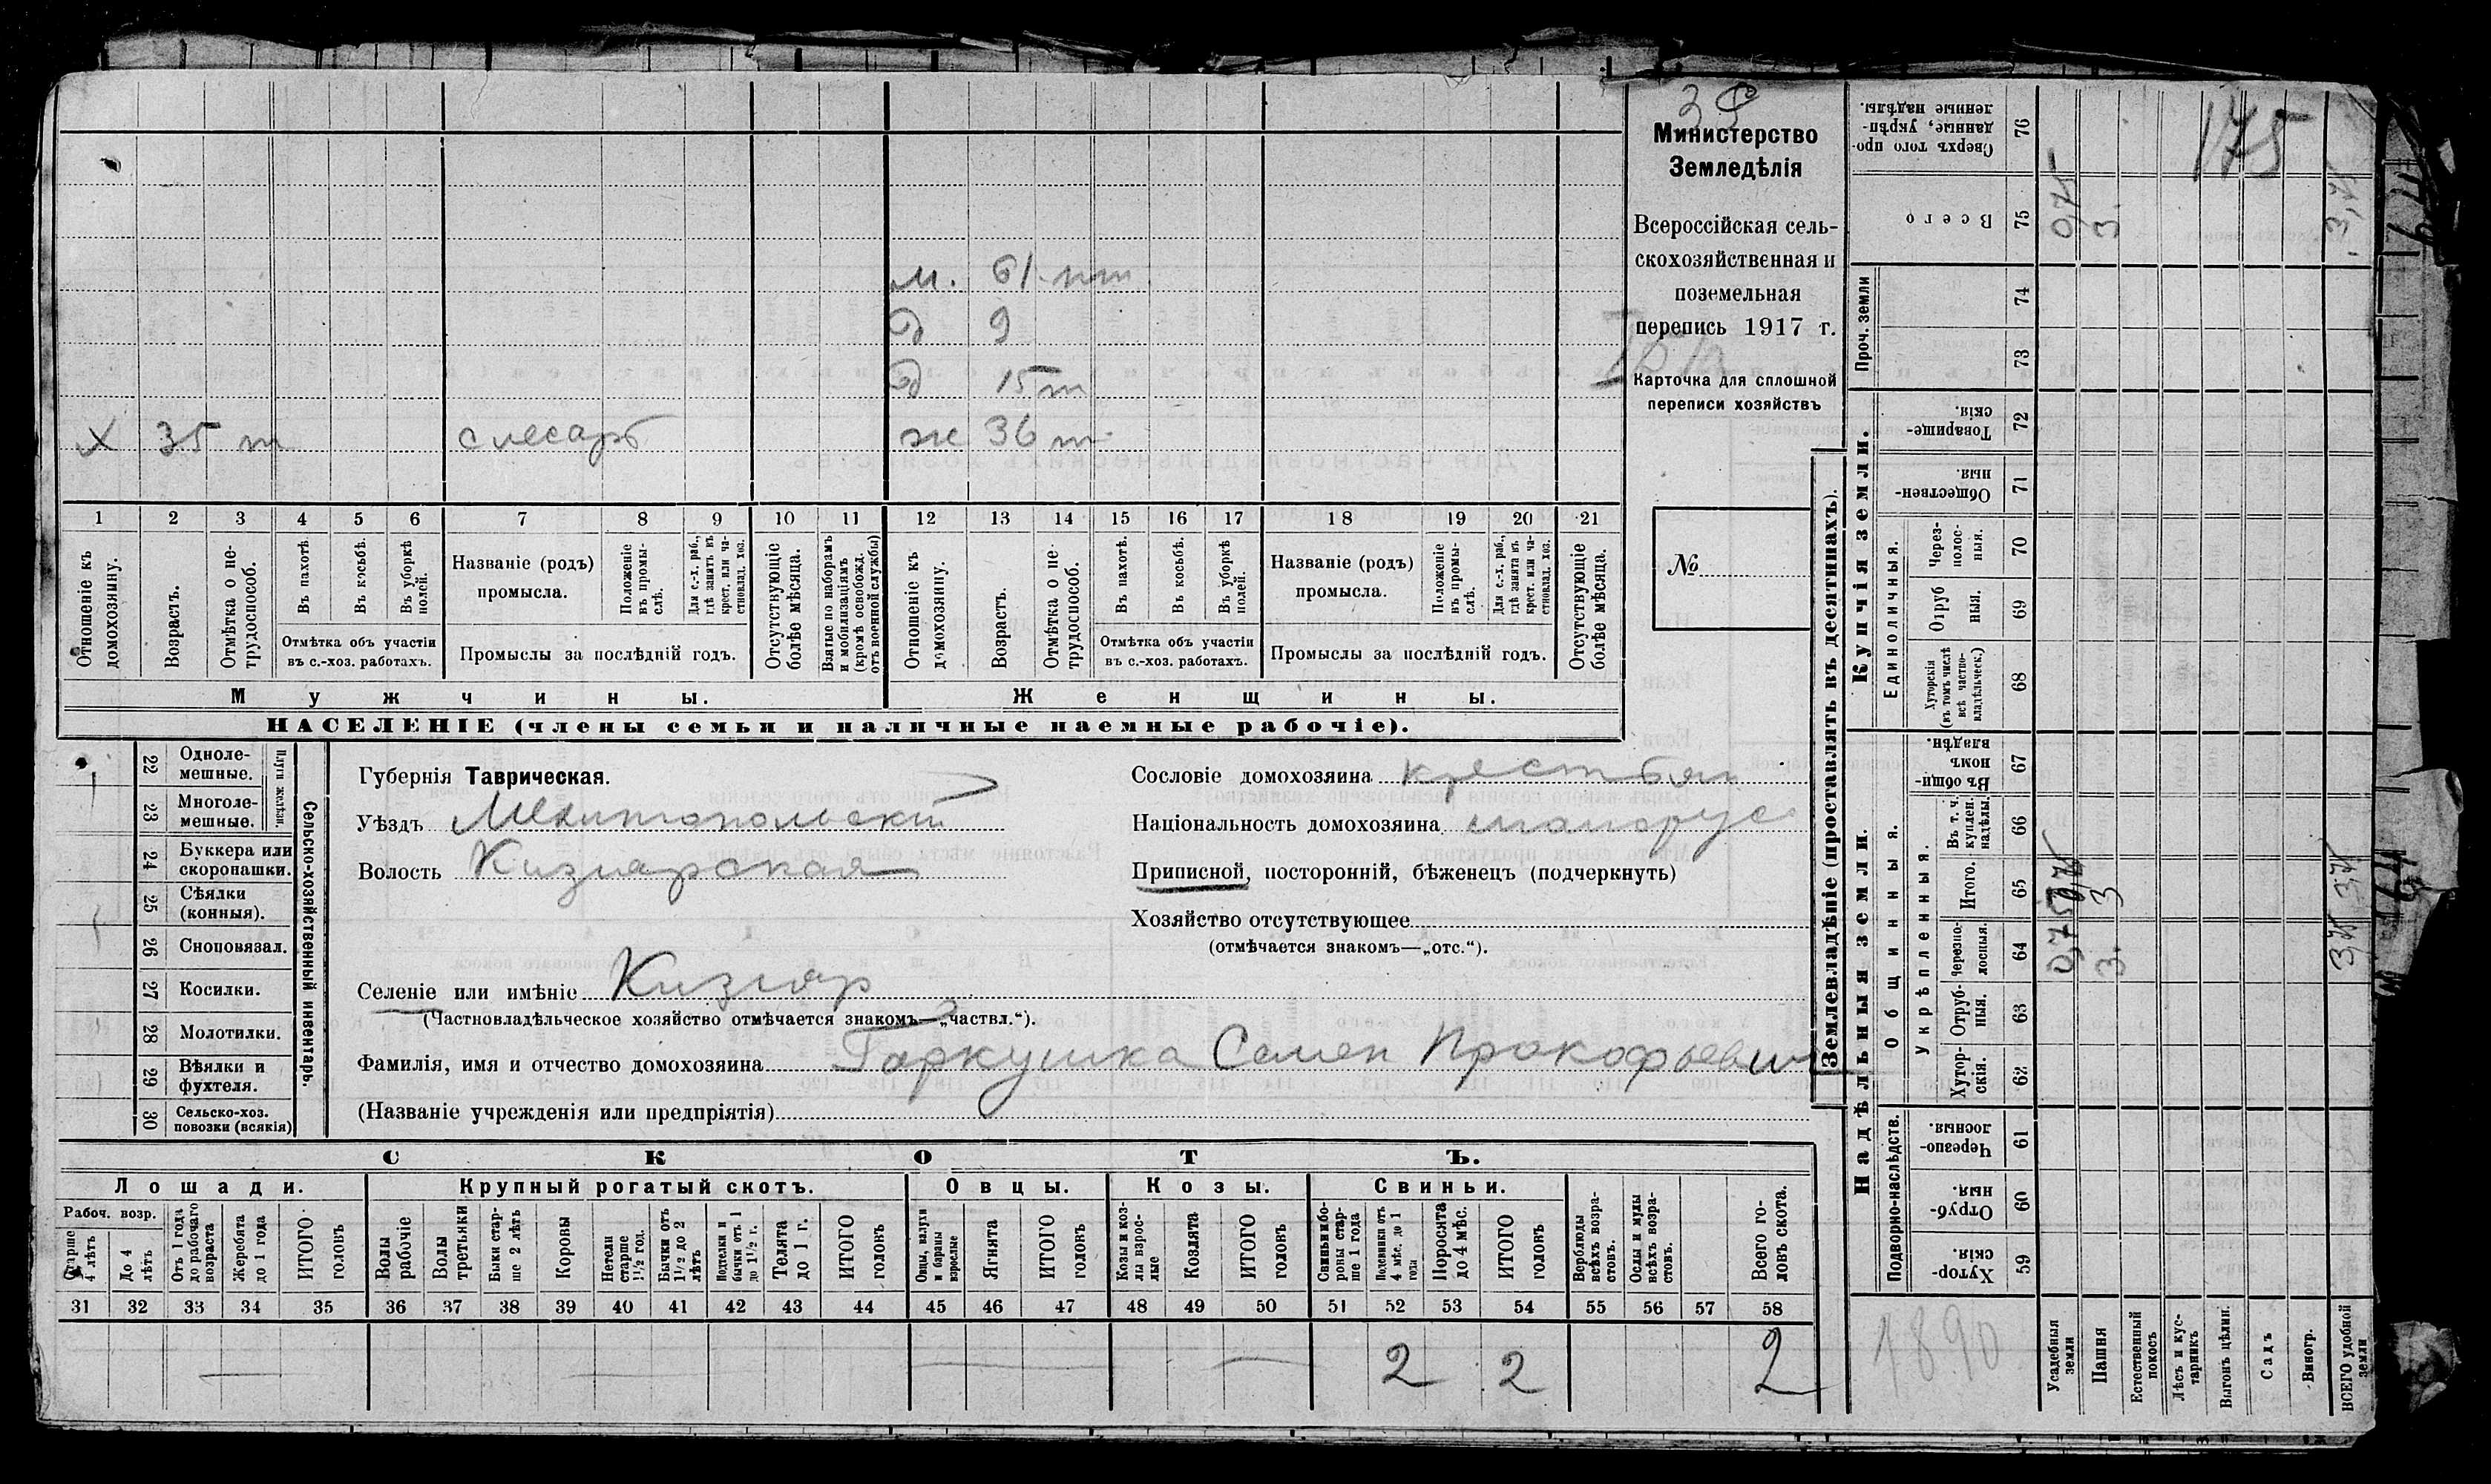 175
Министерство
Земледѣлія
Всероссійская сель-
скохозяйственная и
поземельная
перепись 1917 г.
Карточка для сплошной
переписи хозяйствъ
№
м. 61 т
д 9
д 15 т
х 35 т слесарь ж 36 т
1 2 3 4 5 6 7 8 9 10 11 12 13 14 15 16 17 18 19 20 21
Отношеніе къ домохозяину.
Возрастъ.
Отмѣтка о не-трудоспособ.
Въ пахотѣ.
Въ косьбѣ.
Въ уборкѣ полей.
Отмѣтка объ участіи
въ с.-хоз. работахъ.
Названіе (родъ)
промысла.
Положеніе въ промы-слѣ.
Для с.-х. раб., гдѣ занятъ въ крест. или ча-стновлад. хоз.
Промыслы за послѣдній годъ.
Отсутствующіе болѣе мѣсяца.
Взятые по наборамъ и мобилизаціямъ (кромѣ освобожд. отъ военной службы)
Отношеніе къ домохозяину.
Возрастъ.
Отмѣтка о не-трудоспособ.
Въ пахотѣ.
Въ косьбѣ.
Въ уборкѣ полей.
Отмѣтка объ участіи
въ с.-хоз. работахъ.
Названіе (родъ)
промысла.
Положеніе въ промы-слѣ.
Для с.-х. раб., гдѣ занята въ крест. или ча-стновлад. хоз.
Промыслы за послѣдній годъ.
Отсутствующіе болѣе мѣсяца.
Мужчины. Женщины.
НАСЕЛЕНІЕ (члены семьи и наличные наемные рабочіе).
Сельско-хозяйственный инвентарь.
Плуги желѣзн.
22 Одноле-мешные.
23 Многоле-мешные.
24 Буккера или скоропашки.
25 Сѣялки (конныя).
26 Сноповязал.
27 Косилки.
28 Молотилки.
29 Вѣялки и фухтеля.
30 Сельско-хоз. повозки (всякія)
Губернія Таврическая.
Уѣздъ Мелитопольскій
Волость Кизиярская
Сословіе домохозяина крестьян
Національность домохозяина малорус
Приписной, посторонній, бѣженец (подчеркнуть)
Хозяйство отсутствующее
(отмѣчается знакомъ—„отс.“).
Селеніе или имѣніе Кизияр
(Частновладѣльческое хозяйство отмѣчается знакомъ—„частвл.“).
Фамилія, имя и отчество домохозяина Гаркушка Семен Прокофьевич
(Названіе учрежденія или предпріятія)
СКОТЪ.
Лошади. Крупный рогатый скотъ. Овцы. Козы. Свиньи.
Рабоч. возр.
Старше 4 лѣтъ
До 4 лѣтъ
Отъ 1 года до рабочаго возраста
Жеребята до 1 года
ИТОГО головъ
Волы рабочіе
Волы третьяки
Быки стар-ше 2 лѣтъ
Коровы
Нетели старше 1½ год.
Бычки отъ 1½ до 2 лѣтъ
Подтелки и бычки отъ 1 до 1½ г.
Телята до 1 г.
ИТОГО головъ
Овцы, валухи и бараны взрослые
Ягнята
ИТОГО головъ
Козы и коз-лы взрос-лые
Козлята
ИТОГО головъ
Свиньи и бо-ровы стар-ше 1 года
Подсвинки отъ 4 мѣс. до 1 года
Поросята до 4 мѣс.
ИТОГО головъ
Верблюды всѣхъ возра-стовъ.
Ослы и мулы всѣхъ возра-стовъ.
Всего го-ловъ скота.
31 32 33 34 35 36 37 38 39 40 41 42 43 44 45 46 47 48 49 50 51 52 53 54 55 56 57 58
2 2 2
Землевладѣніе (проставлять въ десятинахъ).
Надѣльныя земли. Купчія земли. Проч. земли
Подворно-наслѣдств.
Общинныя.
Укрѣпленныя.
Единоличныя.
59 Хутор-скія
60 Отруб-ныя.
61 Черезпо-лосныя.
62 Хутор-скія.
63 Отруб-ныя.
64 Черезпо-лосныя. 0,75 3. 3,75
65 Итого. 0,75 3 3,75
66 Въ т. ч. куплен. надѣлы.
67 Въ общи-номъ владѣн.
68 Хуторскія (въ томъ числѣ всѣ частно-владѣльческ.)
69 Отруб ныя.
70 Через-полос-ныя.
71 Обществен-ныя.
72 Товарище-скія.
73
74
75 Всего 0,75 3. 3,75
76 Сверхъ того про-данные, укрѣп-ленные надѣлы.
1890
Усадебныя земли
Пашня
Естественный покосъ
Лѣсъ и кус-тарникъ
Выгонъ цѣлин.
Садъ
Виногр.
ВСЕГО удобной земли